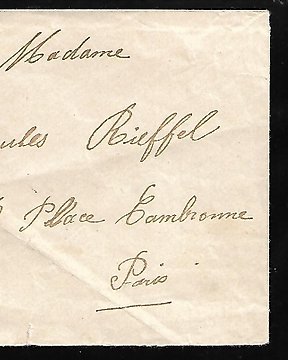 Madame
ules Rieffel
Place Cambronne
Paris